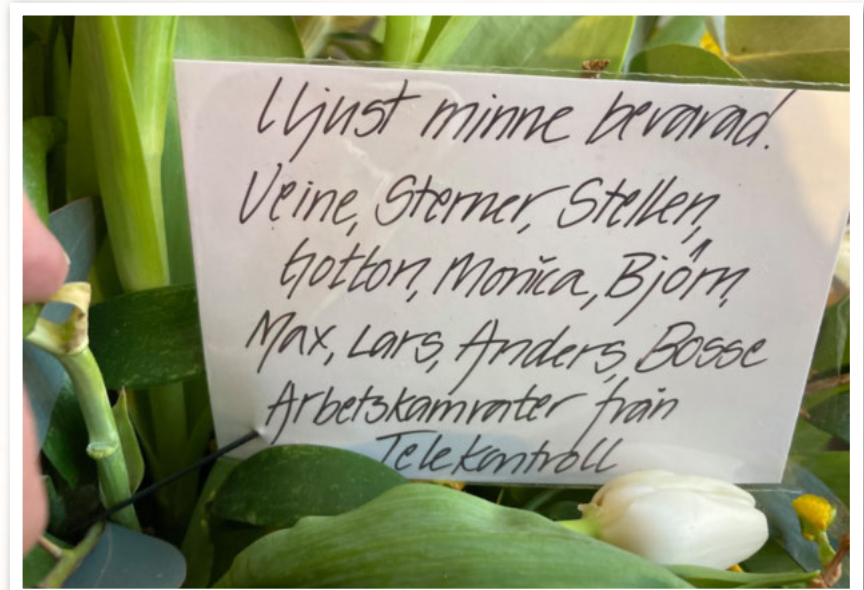 I ljust minne bevarad.
Veine, Sterner, Stellen,
Gotton, Monica, Björn,
Max, Lars, Anders, Bosse
Arbetskamrater från
Telekontroll